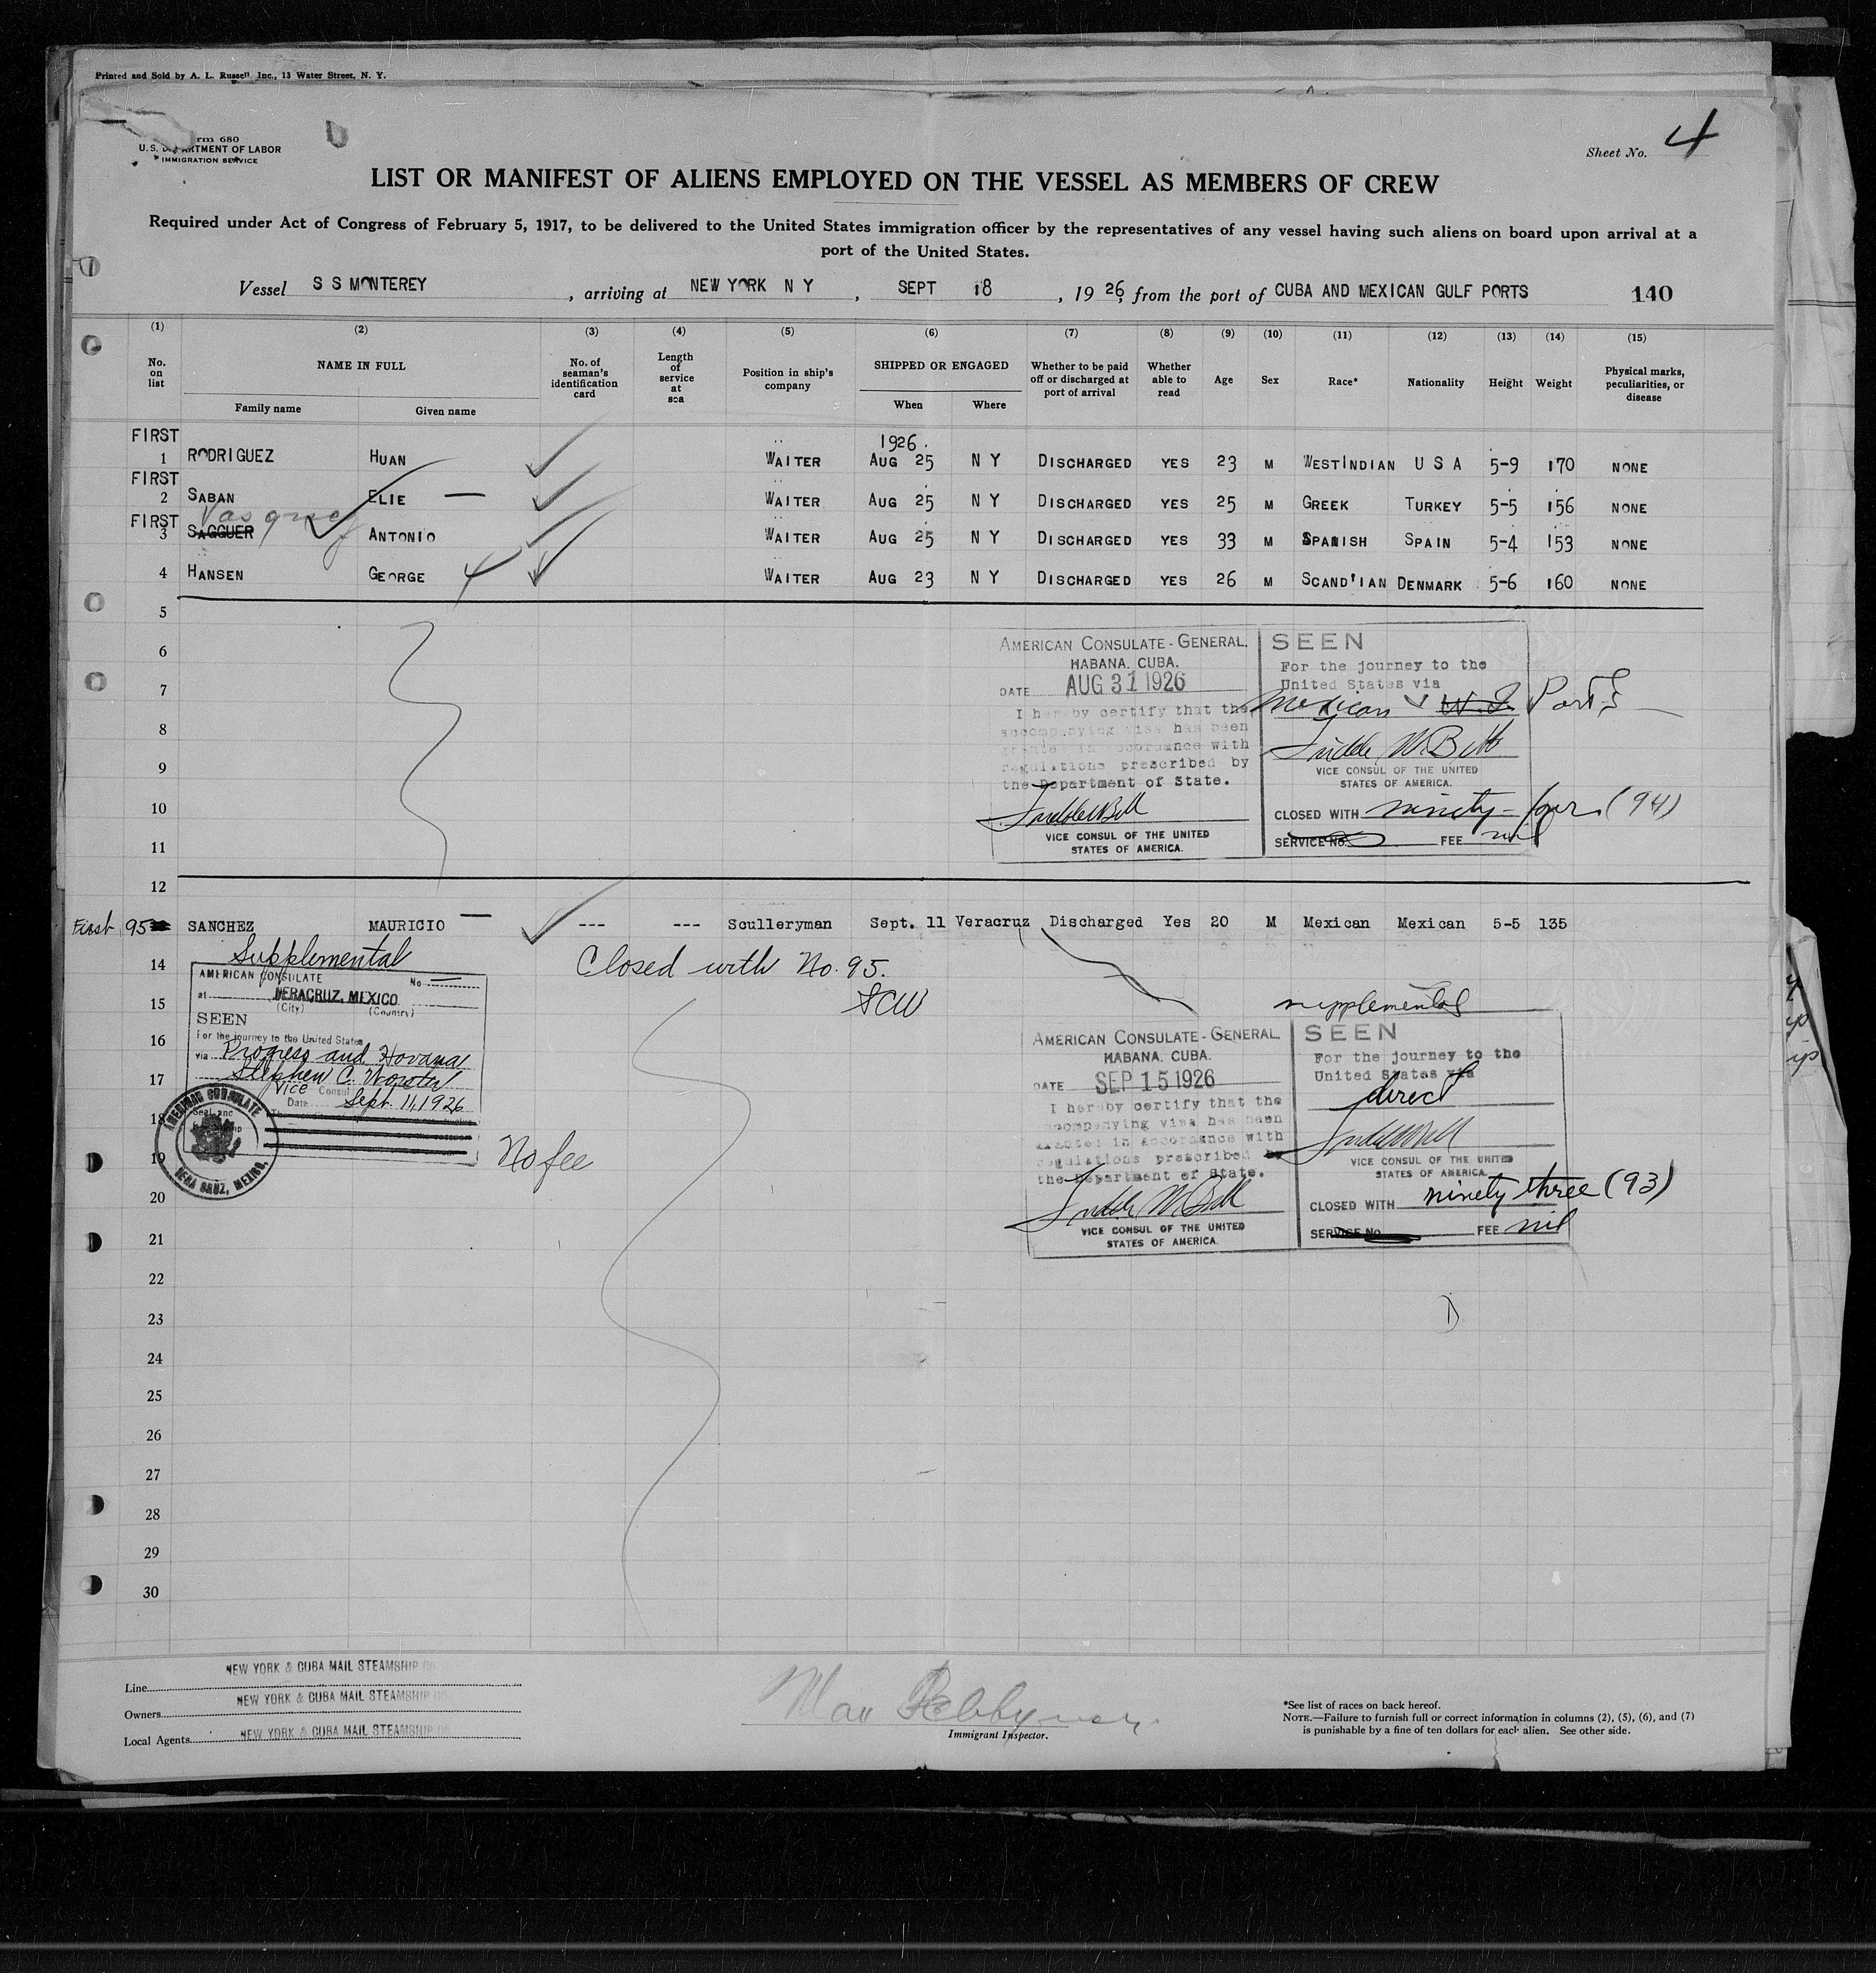 Printed and Sold by A. L. Russell, Inc., 13 Water Street, N. Y.
rm 680
U.S. DEPARTMENT OF LABOR
IMMIGRATION SERVICE
Sheet No. 4
LIST OR MANIFEST OF ALIENS EMPLOYED ON THE VESSEL AS MEMBERS OF CREW
Required under Act of Congress of February 5, 1917, to be delivered to the United States immigration officer by the representatives of any vessel having such aliens on board upon arrival at a
port of the United States.
Vessel S S MONTEREY , arriving at NEW YORK N Y , SEPT 18 , 1926, from the port of CUBA AND MEXICAN GULF PORTS 140
(1) (2) (3) (4) (5) (6) (7) (8) (9) (10) (11) (12) (13) (14) (15)
No. on list NAME IN FULL Family name Given name No. of seaman's identification card Length of service at sea Position in ship's company SHIPPED OR ENGAGED When Where Whether to be paid off or discharged at port of arrival Whether able to read Age Sex Race* Nationality Height Weight Physical marks, peculiarities, or disease
FIRST 1926.
1 RODRIGUEZ HUAN WAITER AUG 25 N Y DISCHARGED YES 23 M WESTINDIAN U S A 5-9 170 NONE
FIRST
2 SABAN ELIE — WAITER AUG 25 N Y DISCHARGED YES 25 M GREEK TURKEY 5-5 156 NONE
FIRST Vasquez
3 SAGGUER ANTONIO WAITER AUG 25 N Y DISCHARGED YES 33 M SPANISH SPAIN 5-4 153 NONE
4 HANSEN GEORGE WAITER AUG 23 N Y DISCHARGED YES 26 M SCAND'IAN DENMARK 5-6 160 NONE
5
6
7
8
9
10
11
12
AMERICAN CONSULATE-GENERAL,
HABANA, CUBA.
DATE AUG 31 1926
I hereby certify that the
accompanying visa has been
granted in accordance with
regulations prescribed by
the Department of State.
VICE CONSUL OF THE UNITED
STATES OF AMERICA.
SEEN
For the journey to the
United States via
Mexican W.I. Ports
VICE CONSUL OF THE UNITED
STATES OF AMERICA.
CLOSED WITH ninety-four (94)
SERVICE No. FEE nil
First 95 SANCHEZ MAURICIO — --- --- Sculleryman Sept. 11 Veracruz Discharged Yes 20 M Mexican Mexican 5-5 135
Supplemental
Closed with No. 95.
SCW
14
15
16
17
18
19
20
21
22
23
24
25
26
27
28
29
30
AMERICAN CONSULATE No.
at VERACRUZ, MEXICO
(City) (Country)
SEEN
For the journey to the United States
via Progreso and Havana
Stephen C. Worster
Vice Consul
Date Sept. 11, 1926
AMERICAN CONSULATE
VERA CRUZ, MEXICO.
No fee
supplemental
AMERICAN CONSULATE-GENERAL,
HABANA, CUBA.
DATE SEP 15 1926
I hereby certify that the
accompanying visa has been
granted in accordance with
regulations prescribed by
the Department of State.
VICE CONSUL OF THE UNITED
STATES OF AMERICA.
SEEN
For the journey to the
United States via
direct
VICE CONSUL OF THE UNITED
STATES OF AMERICA.
CLOSED WITH ninety three (93)
SERVICE No. FEE nil
Line NEW YORK & CUBA MAIL STEAMSHIP CO.
Owners NEW YORK & CUBA MAIL STEAMSHIP CO.
Local Agents NEW YORK & CUBA MAIL STEAMSHIP CO.
Immigrant Inspector.
*See list of races on back hereof.
NOTE.—Failure to furnish full or correct information in columns (2), (5), (6), and (7)
is punishable by a fine of ten dollars for each alien. See other side.